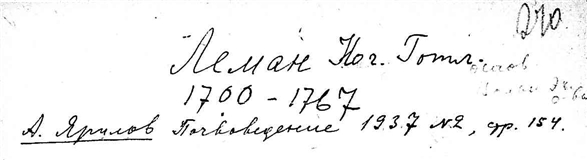 270.
Леман Иог. Готл.
1700 - 1767
А. Ярилов Почвоведение 1937 №2, стр. 154.